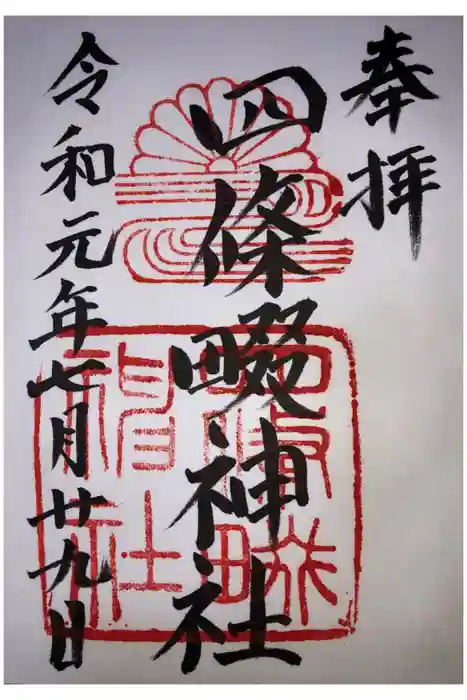 奉拝
四條畷神社
令和元年七月廿九日